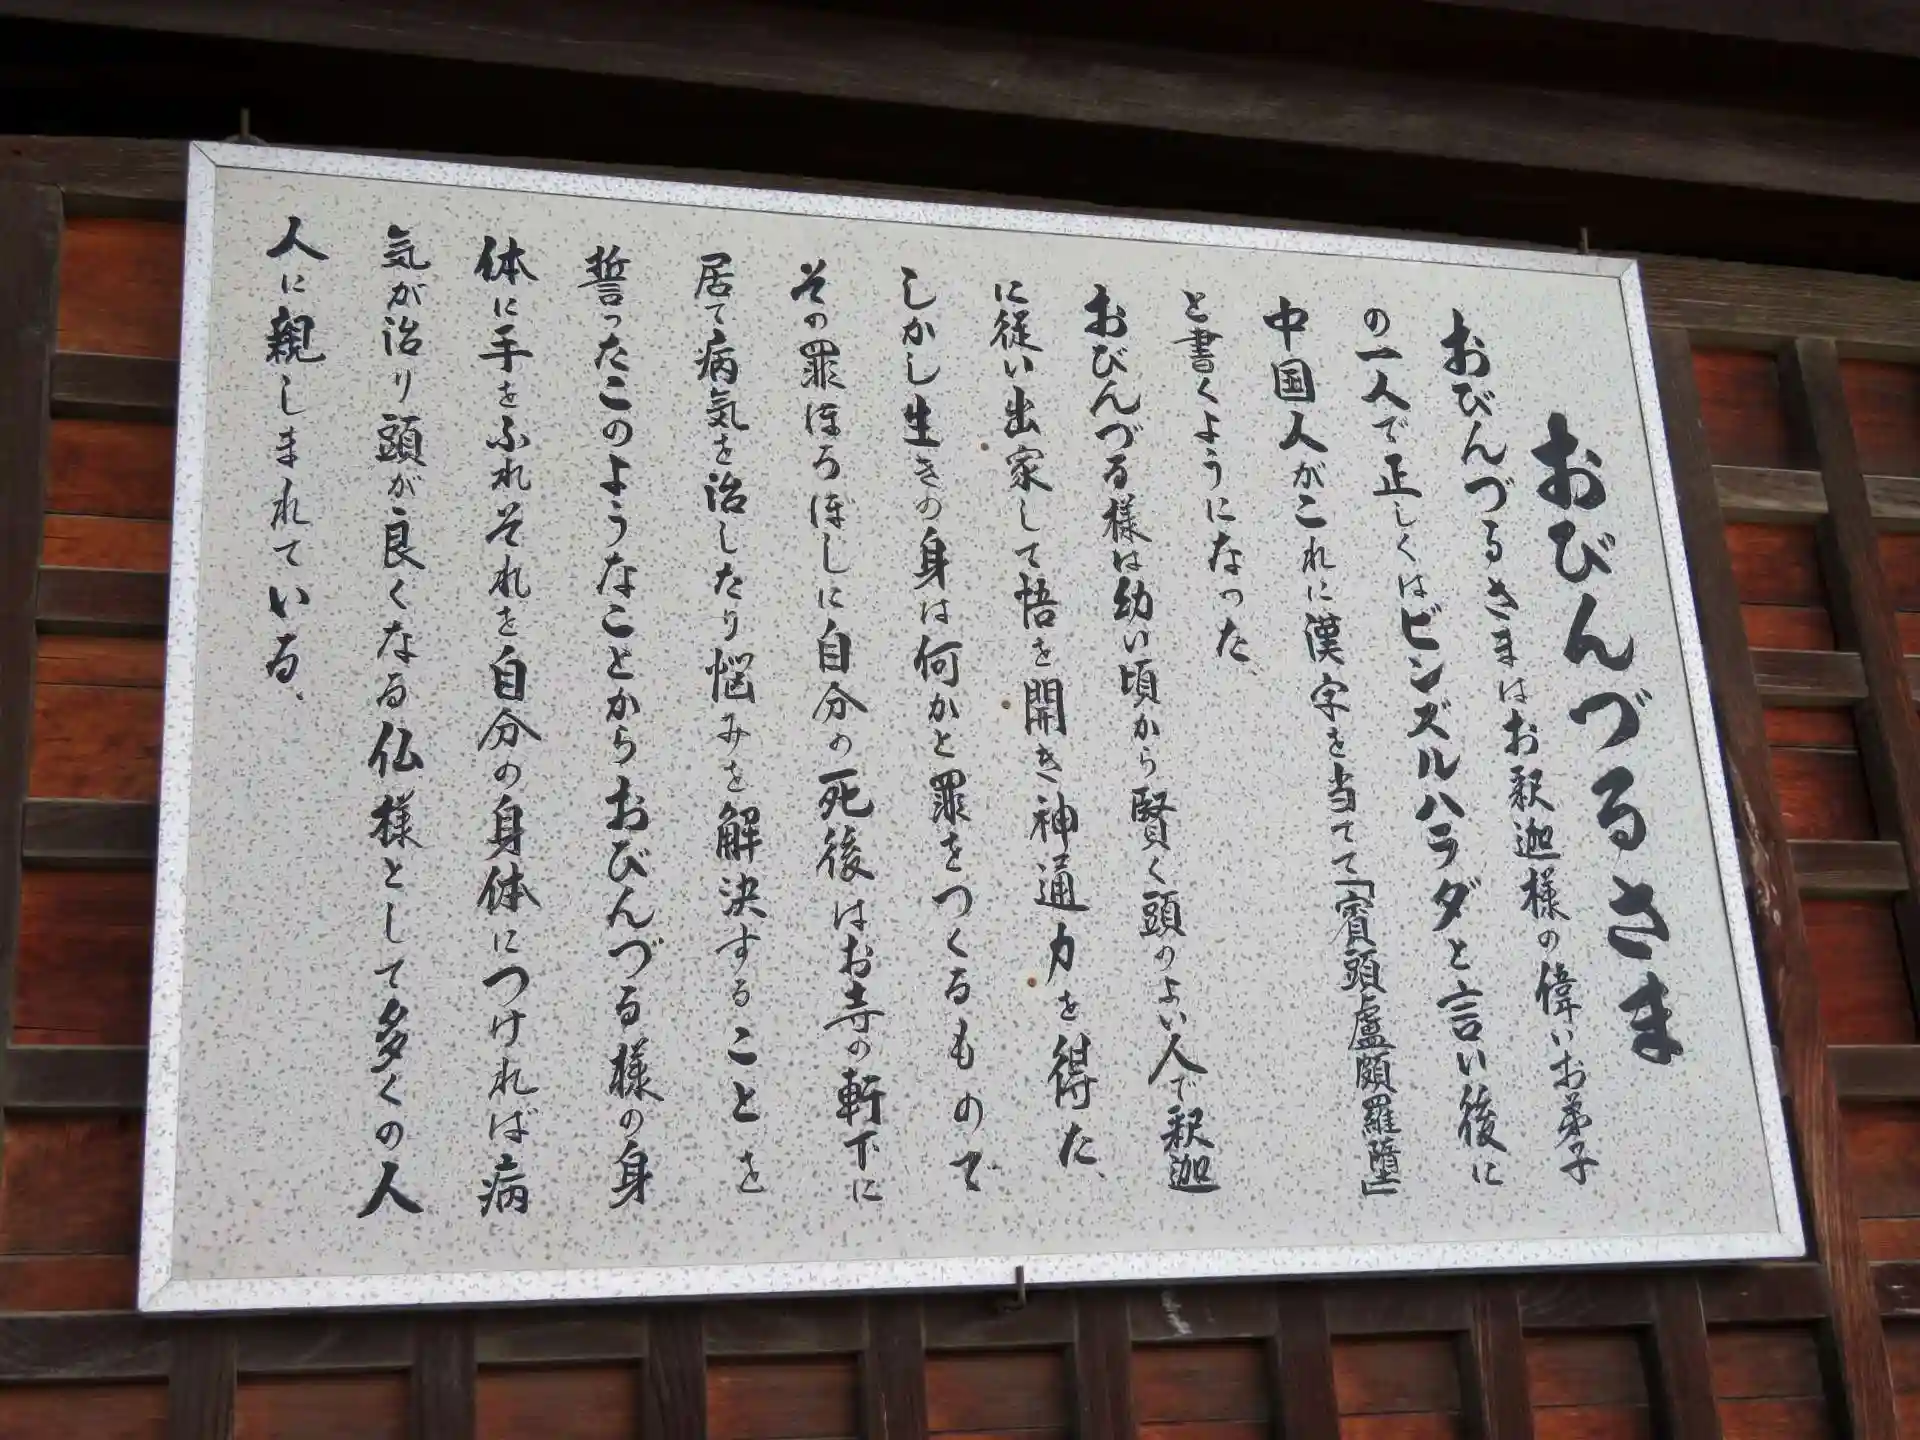 おびんづるさま
おびんづるさまはお釈迦様の偉いお弟子
の一人で正しくはビンズルハラダと言い後に
中国人がこれに漢字を当てて「賓頭盧頗羅堕」
と書くようになった、
おびんづる様は幼い頃から賢く頭のよい人で釈迦
に従い出家して悟を開き神通力を得た、
しかし生きの身は何かと罪をつくるもので
その罪ほろぼしに自分の死後はお寺の軒下に
居て病気を治したり悩みを解決することを
誓ったこのようなことからおびんづる様の身
体に手をふれそれを自分の身体につければ病
気が治り頭が良くなる仏様として多くの人
人に親しまれている、